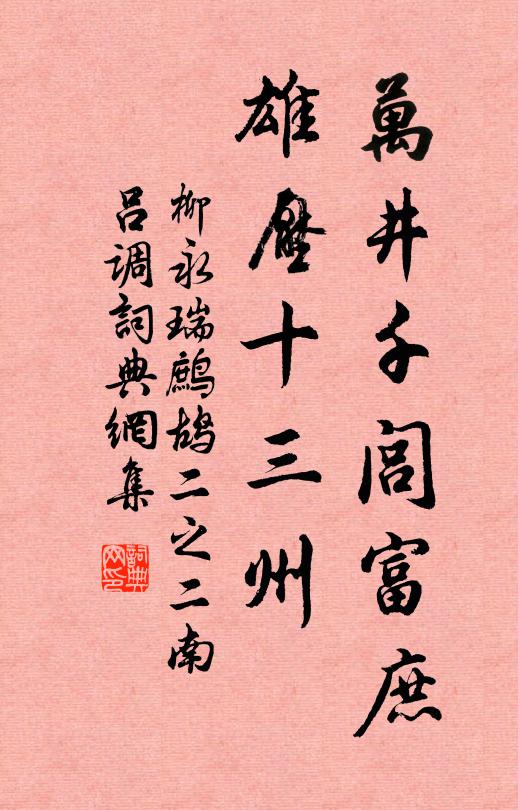 萬井千閭富庶
雄壓十三州
柳永瑞鷓鴣二之二南
呂调詞典網集
詞典网印